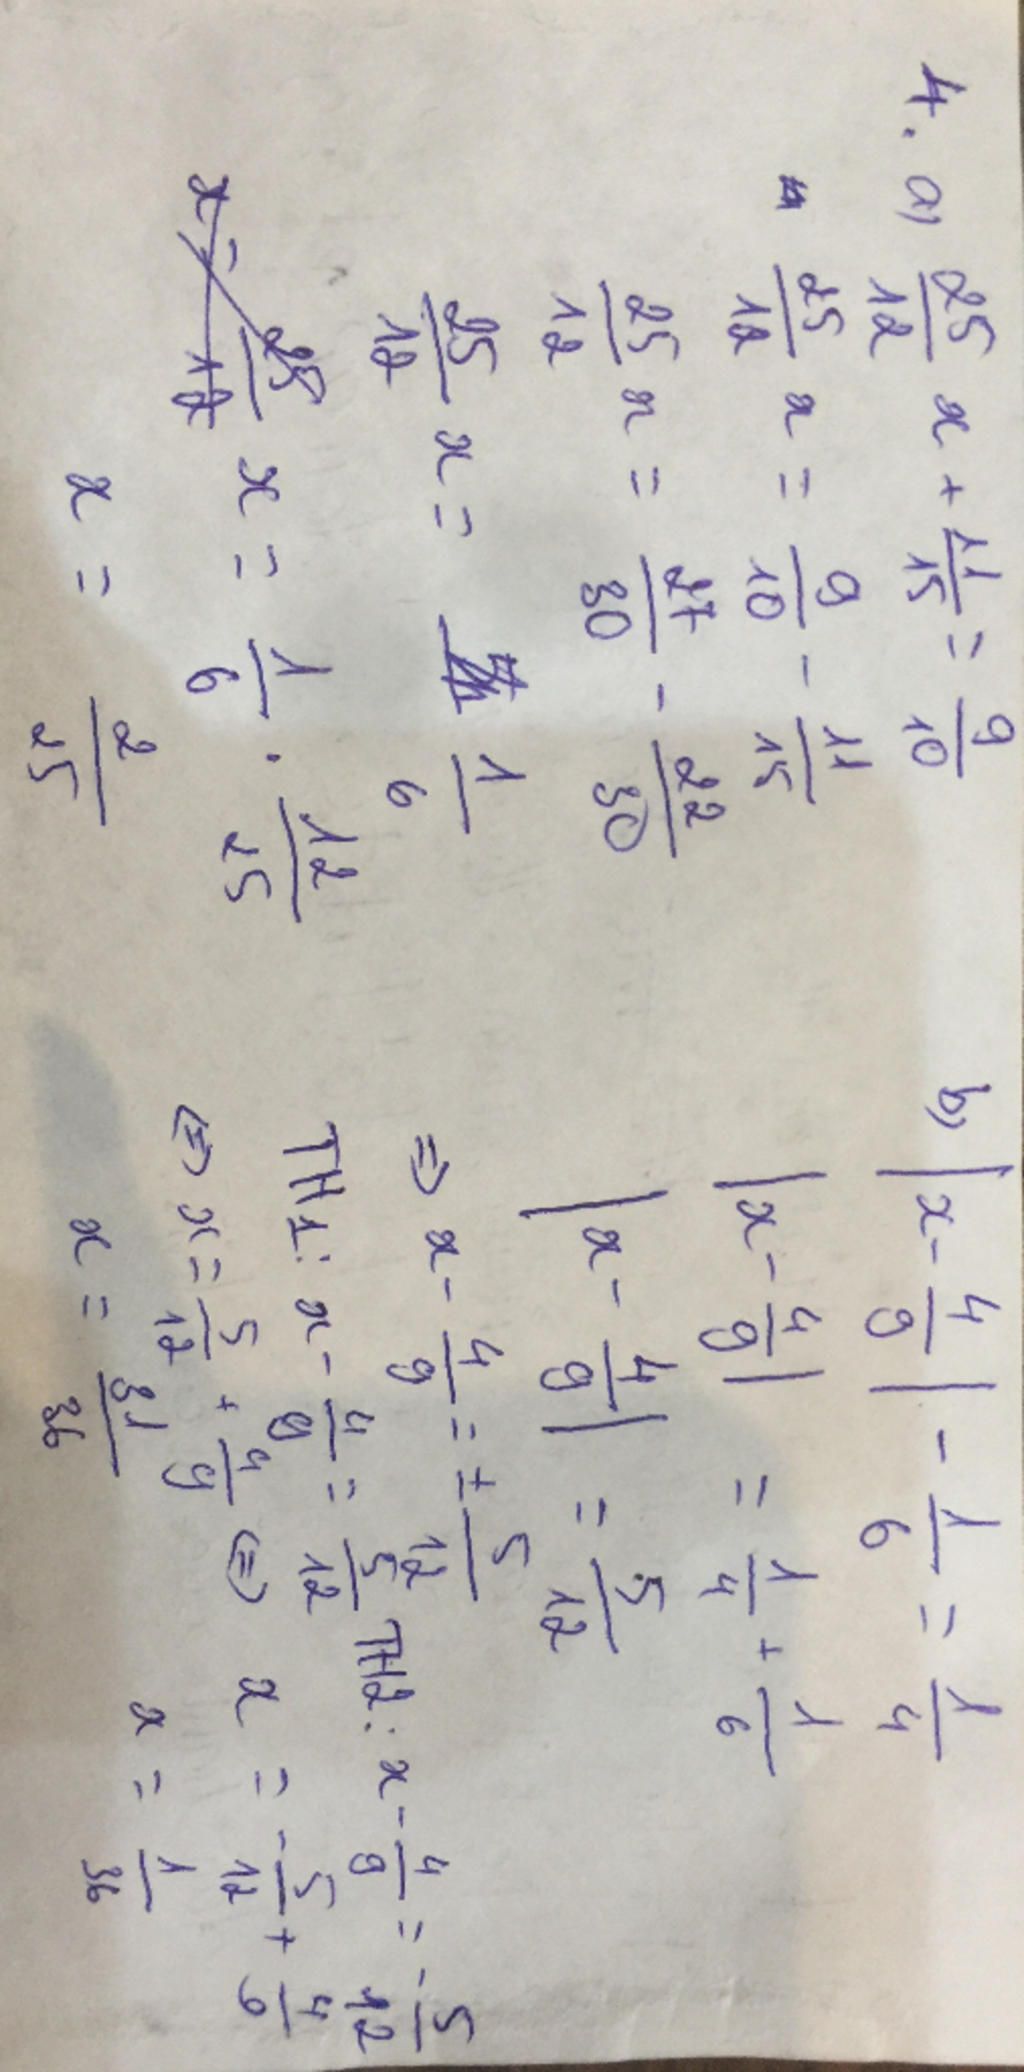 4. a) 25/12 x + 11/15 = 9/10
25/12 x = 9/10 - 11/15
25/12 x = 27/30 - 22/30
25/12 x = 1/6
x = 1/6 . 12/25
x = 2/25
b) |x - 4/9| - 1/6 = 1/4
|x - 4/9| = 1/4 + 1/6
|x - 4/9| = 5/12
=> x - 4/9 = ± 5/12
TH1: x - 4/9 = 5/12
<=> x = 5/12 + 4/9
x = 31/36
TH2: x - 4/9 = -5/12
<=> x = -5/12 + 4/9
x = 1/36